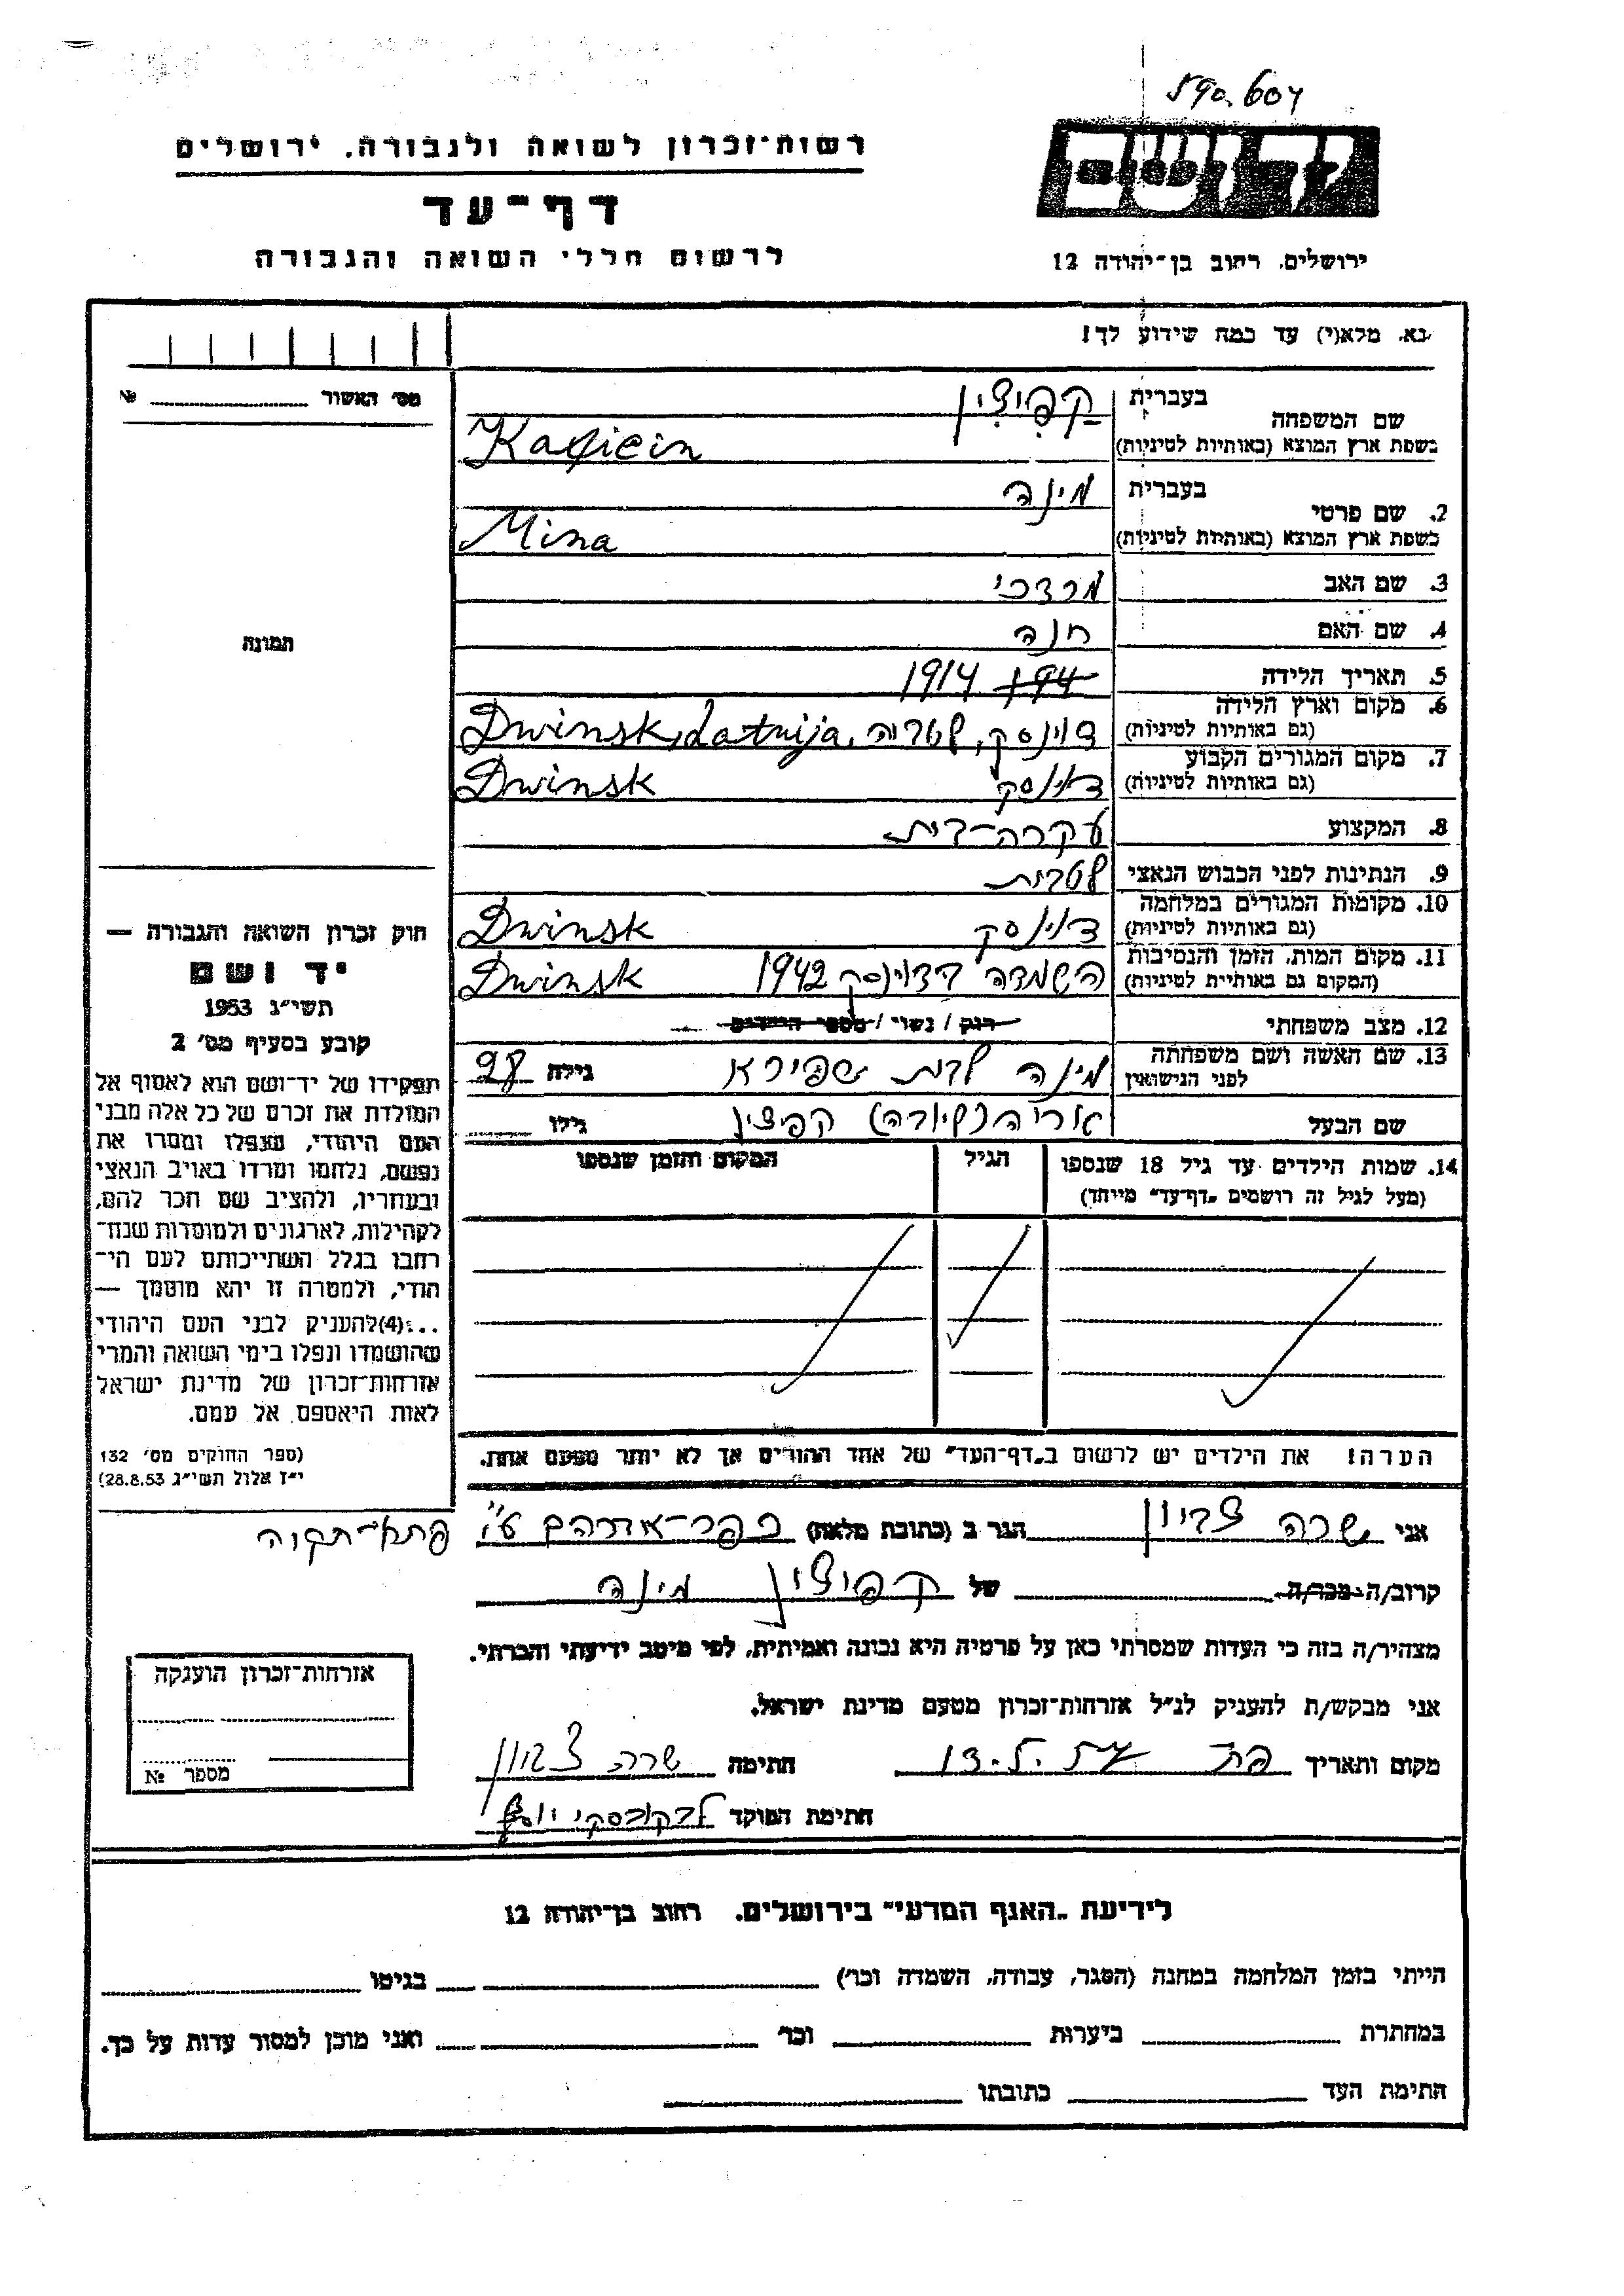 590.604
רשות־זכרון לשואה ולגבורה. ירושלים
דף־עד
לרשום חללי השואה והגבורה
ירושלים. רחוב בן־יהודה 12
נא. מלא(י) עד כמה שידוע לך!
מס׳ האשור № 
שם המשפחה
בעברית קפיצין
בשפת ארץ המוצא (באותיות לטיניות) Kapicin
2. שם פרטי
בעברית מינה
בשפת ארץ המוצא (באותיות לטיניות) Mina
3. שם האב מרדכי
4. שם האם חנה
5. תאריך הלידה 194 1914
6. מקום וארץ הלידה
(גם באותיות לטיניות) דוינסק, לטביה. Dwinsk, Latvija
7. מקום המגורים הקבוע
(גם באותיות לטיניות) דוינסק Dwinsk
8. המקצוע עקרת-בית
9. הנתינות לפני הכבוש הנאצי לטבית
10. מקומות המגורים במלחמה
(גם באותיות לטיניות) דוינסק Dwinsk
11. מקום המות, הזמן והנסיבות
(המקום גם באותיות לטיניות) השמדה בדוינסק 1942 Dwinsk
12. מצב משפחתי רוק / נשוי / מספר הילדים
13. שם האשה ושם משפחתה
לפני הנישואין מינה לבית שפירא גילה 28
שם הבעל אריה קפיצין גילו
14. שמות הילדים עד גיל 18 שנספו הגיל המקום והזמן שנספו
(מעל לגיל זה רושמים "דף־עד" מיוחד)
הערה! את הילדים יש לרשום ב"דף־העד" של אחד ההורים אך לא יותר מפעם אחת.
תמונה
חוק זכרון השואה והגבורה —
יד ושם
תשי"ג 1953
קובע בסעיף מס׳ 2
תפקידו של יד־ושם הוא לאסוף אל
המולדת את זכרם של כל אלה מבני
העם היהודי, שנפלו ומסרו את
נפשם, נלחמו ומרדו באויב הנאצי
ובעוזריו, ולהציב שם וזכר להם,
לקהילות, לארגונים ולמוסדות שנח־
רבו בגלל השתייכותם לעם הי־
הודי, ולמטרה זו יהא מוסמך —
...(4)להעניק לבני העם היהודי
שהושמדו ונפלו בימי השואה והמרי
אזרחות־זכרון של מדינת ישראל
לאות היאספם אל עמם.
(ספר החוקים מס׳ 132
י"ז אלול תשי"ג 28.8.53)
אני שרה הגר ב (כתובת מלאה) כפר-אברהם ע"י פתח-תקוה
קרוב/ה מכר/ה של קפיצין מינה
מצהיר/ה בזה כי העדות שמסרתי כאן על פרטיה היא נכונה ואמיתית, לפי מיטב ידיעתי והכרתי.
אני מבקש/ת להעניק לנ"ל אזרחות־זכרון מטעם מדינת ישראל.
מקום ותאריך חתימה שרה
חתימת הפוקד
אזרחות־זכרון הוענקה
מספר №
לידיעת "האגף המדעי" בירושלים. רחוב בן־יהודה 12
הייתי בזמן המלחמה במחנה (הסגר, עבודה, השמדה וכו׳) בגיטו
במחתרת ביערות וכו׳ ואני מוכן למסור עדות על כך.
חתימת העד כתובתו